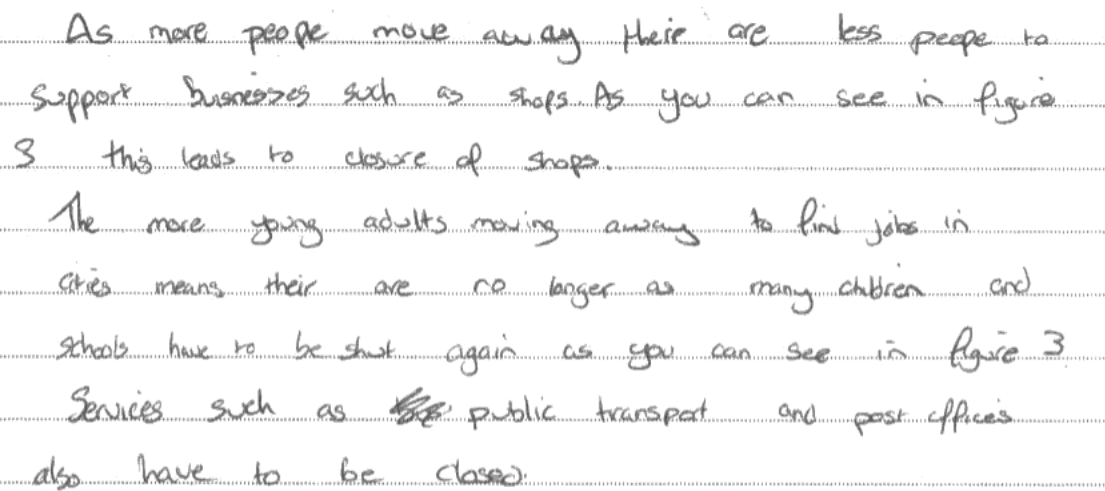 As more peope move away their are less peope to
support busnesses such as shops. As you can see in figure
3 this leads to closure of shops.
The more young adults moving away to find jobs in
cities means their are no longer as many children and
schools have to be shut again as you can see in figure 3
Services such as public transport and post offices
also have to be closed.